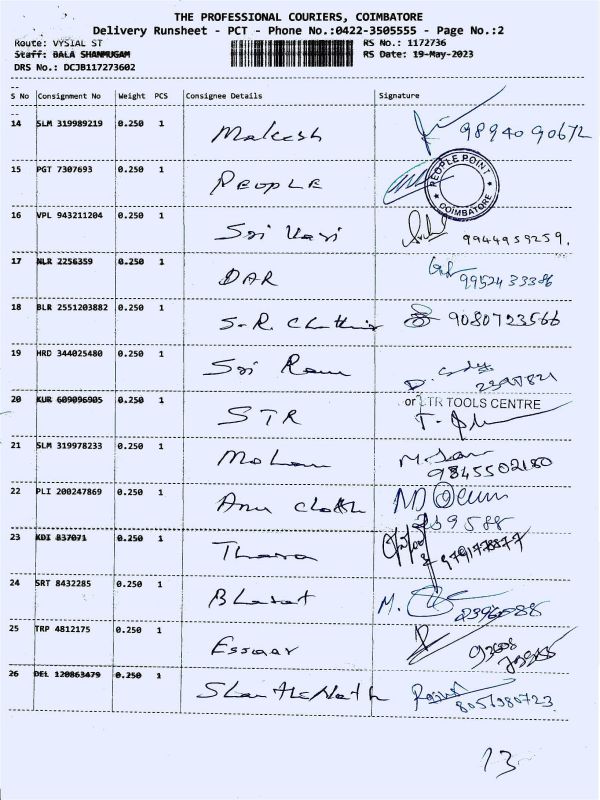 THE PROFESSIONAL COURIERS, COIMBATORE
Delivery Runsheet - PCT - Phone No.:0422-3505555 - Page No.:2
Route: VYSIAL ST RS No.: 1172736
Staff: BALA SHANMUGAM RS Date: 19-May-2023
DRS No.: DCJB117273602
S No Consignment No Weight PCS Consignee Details Signature
14 SLM 319989219 0.250 1 Makesh 98940 90672
15 PGT 7307693 0.250 1 PEOPLE PEOPLE POINT COIMBATORE
16 VPL 943211204 0.250 1 Sri Vasi 9944959259.
17 NLR 2256359 0.250 1 DAR 9952433386
18 BLR 2551203882 0.250 1 S.R. 9080723566
19 HRD 344025480 0.250 1 Sri Ram
20 KUR 609096905 0.250 1 STR TR TOOLS CENTRE
21 SLM 319978233 0.250 1 Mohan 9845502180
22 PLI 200247869 0.250 1 Anu Cloth
23 KDI 837071 0.250 1 Thara
24 SRT 8432285 0.250 1 Bharat M.
25 TRP 4812175 0.250 1 Essaar
26 DEL 120863479 0.250 1 8051980723
13